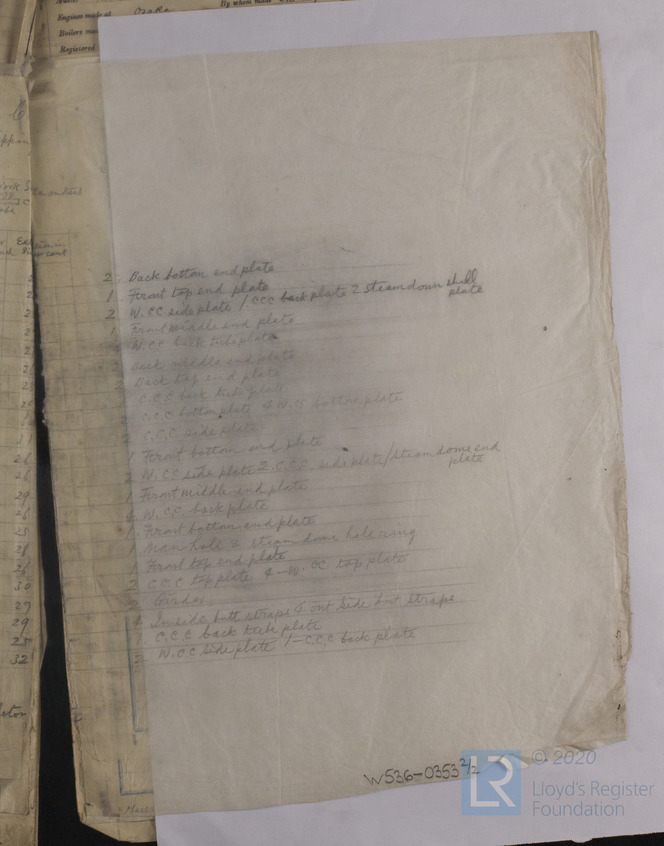 Engines made at Osaka By whom made
Boilers made
Registered
2. Back bottom end plate
1. Front top end plate
2 W.CC side plate / CCC back plate 2 steam down shell
plate
1 Front middle end plate
W.CC back tube plate
Back middle end plate
Back top end plate
C.C.C back tube plate
C.C.C bottom plate 4 W.C bottom plate
2 C.C.C side plate
1 Front bottom end plate
2 W.CC side plate 2 C.C.C. side plate / steam dome end
plate
1 Front middle end plate
W.CC back plate
1 Front bottom end plate
1 Man hole & steam dome hole ring
1 Front top end plate
2 C.C.C top plate 4 - W.CC top plate
Girder
Inside butt straps & out side but straps
C.C.C back tube plate
W.CC side plate 1 - C.C.C back plate
29
26
25
28
26
30
27
29
25
32
W536-0353 2/2
LR
© 2020
Lloyd's Register
Foundation